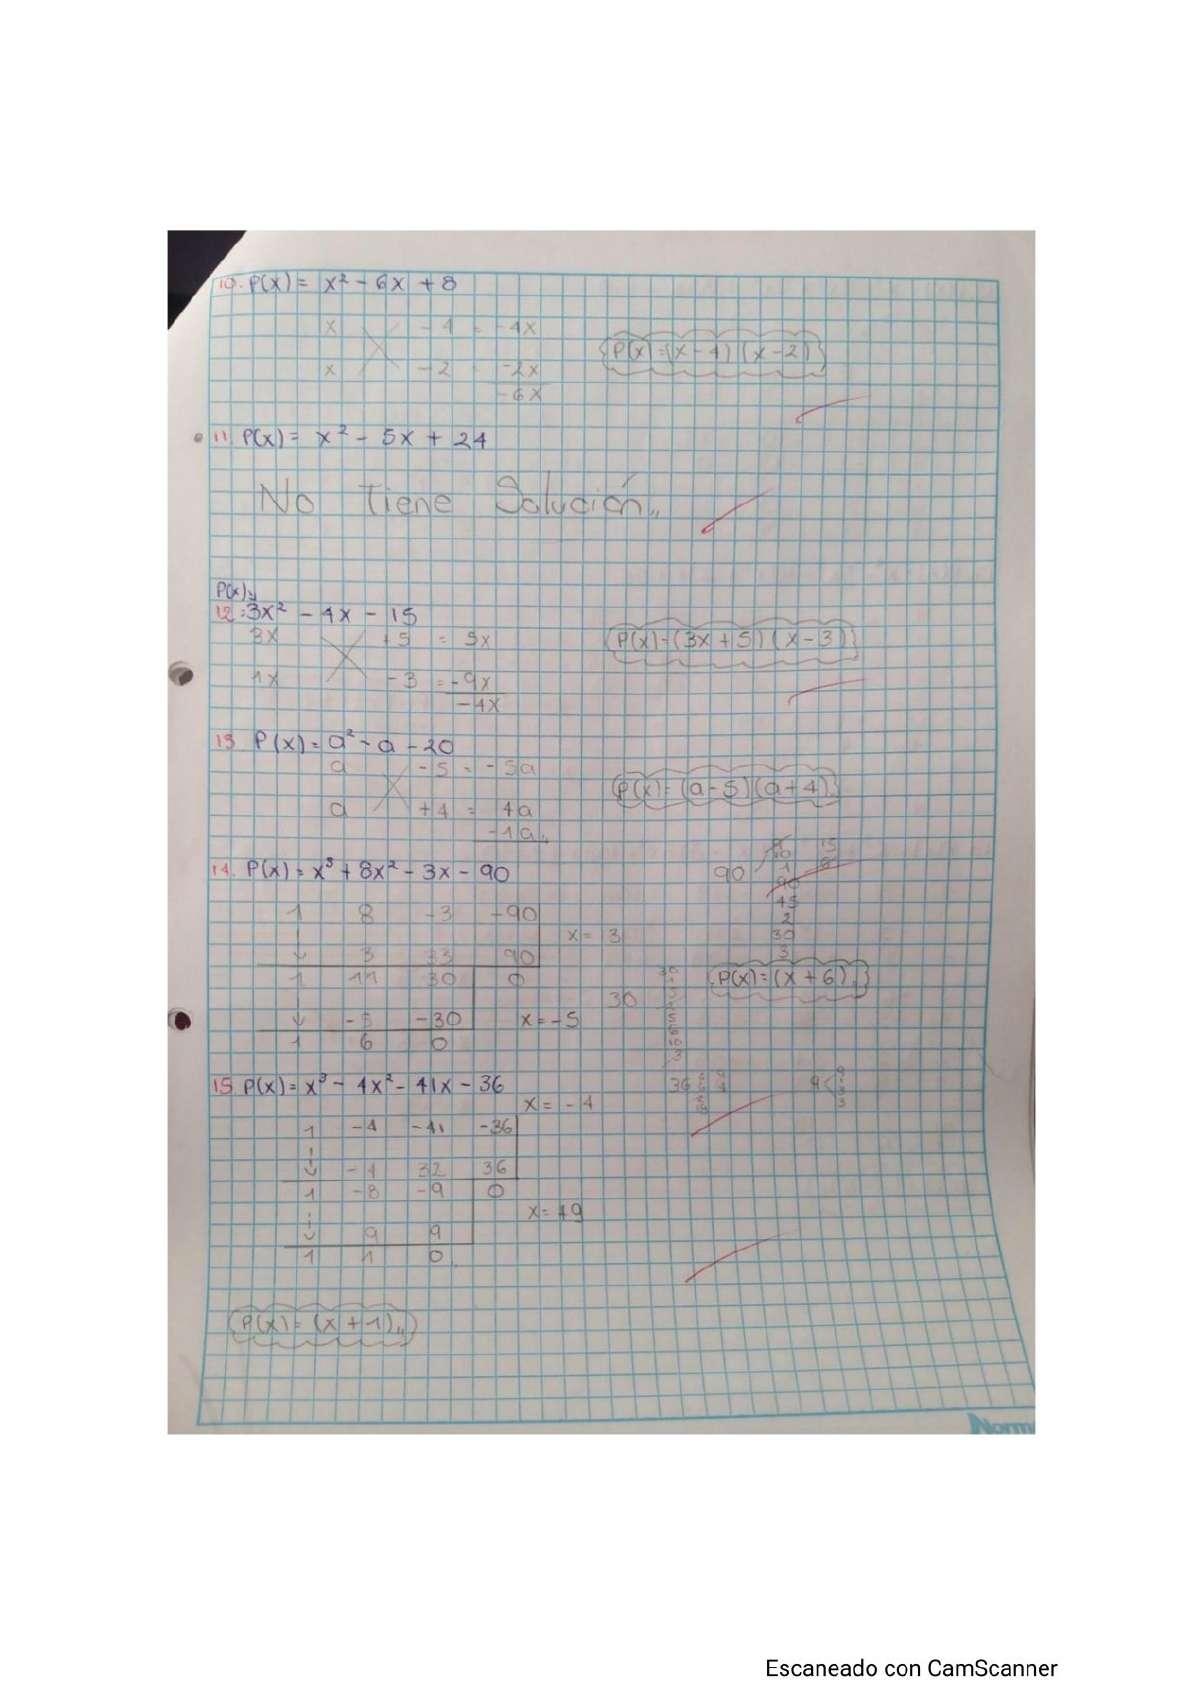 10. P(x) = x² - 6x + 8
x - 4 = -4x
P(x) = (x - 4) (x - 2)
x - 2 = -2x
-6x
11. P(x) = x² - 5x + 24
No Tiene Solución,,
P(x)
12. = 3x² - 4x - 15
3x +5 = 5x
P(x) = (3x + 5) (x - 3)
1x - 3 = -9x
-4x
13. P(x) = a² - a - 20
a - 5 = -5a
P(x) = (a - 5) (a + 4)
a +4 = 4a
-1a,,
14. P(x) = x³ + 8x² - 3x - 90
90
45
2
30
3
1 8 -3 -90
x = 3
3 33 90
1 11 30 0
P(x) = (x + 6)
30
-5 -30 x = -5
1 6 0
15 P(x) = x³ - 4x² - 41x - 36
36
9
9
3
3
x = -4
1 -4 -41 -36
-4 32 36
1 -8 -9 0
x = +9
9 9
1 1 0
P(x) = (x + 1),,
Norm
Escaneado con CamScanner